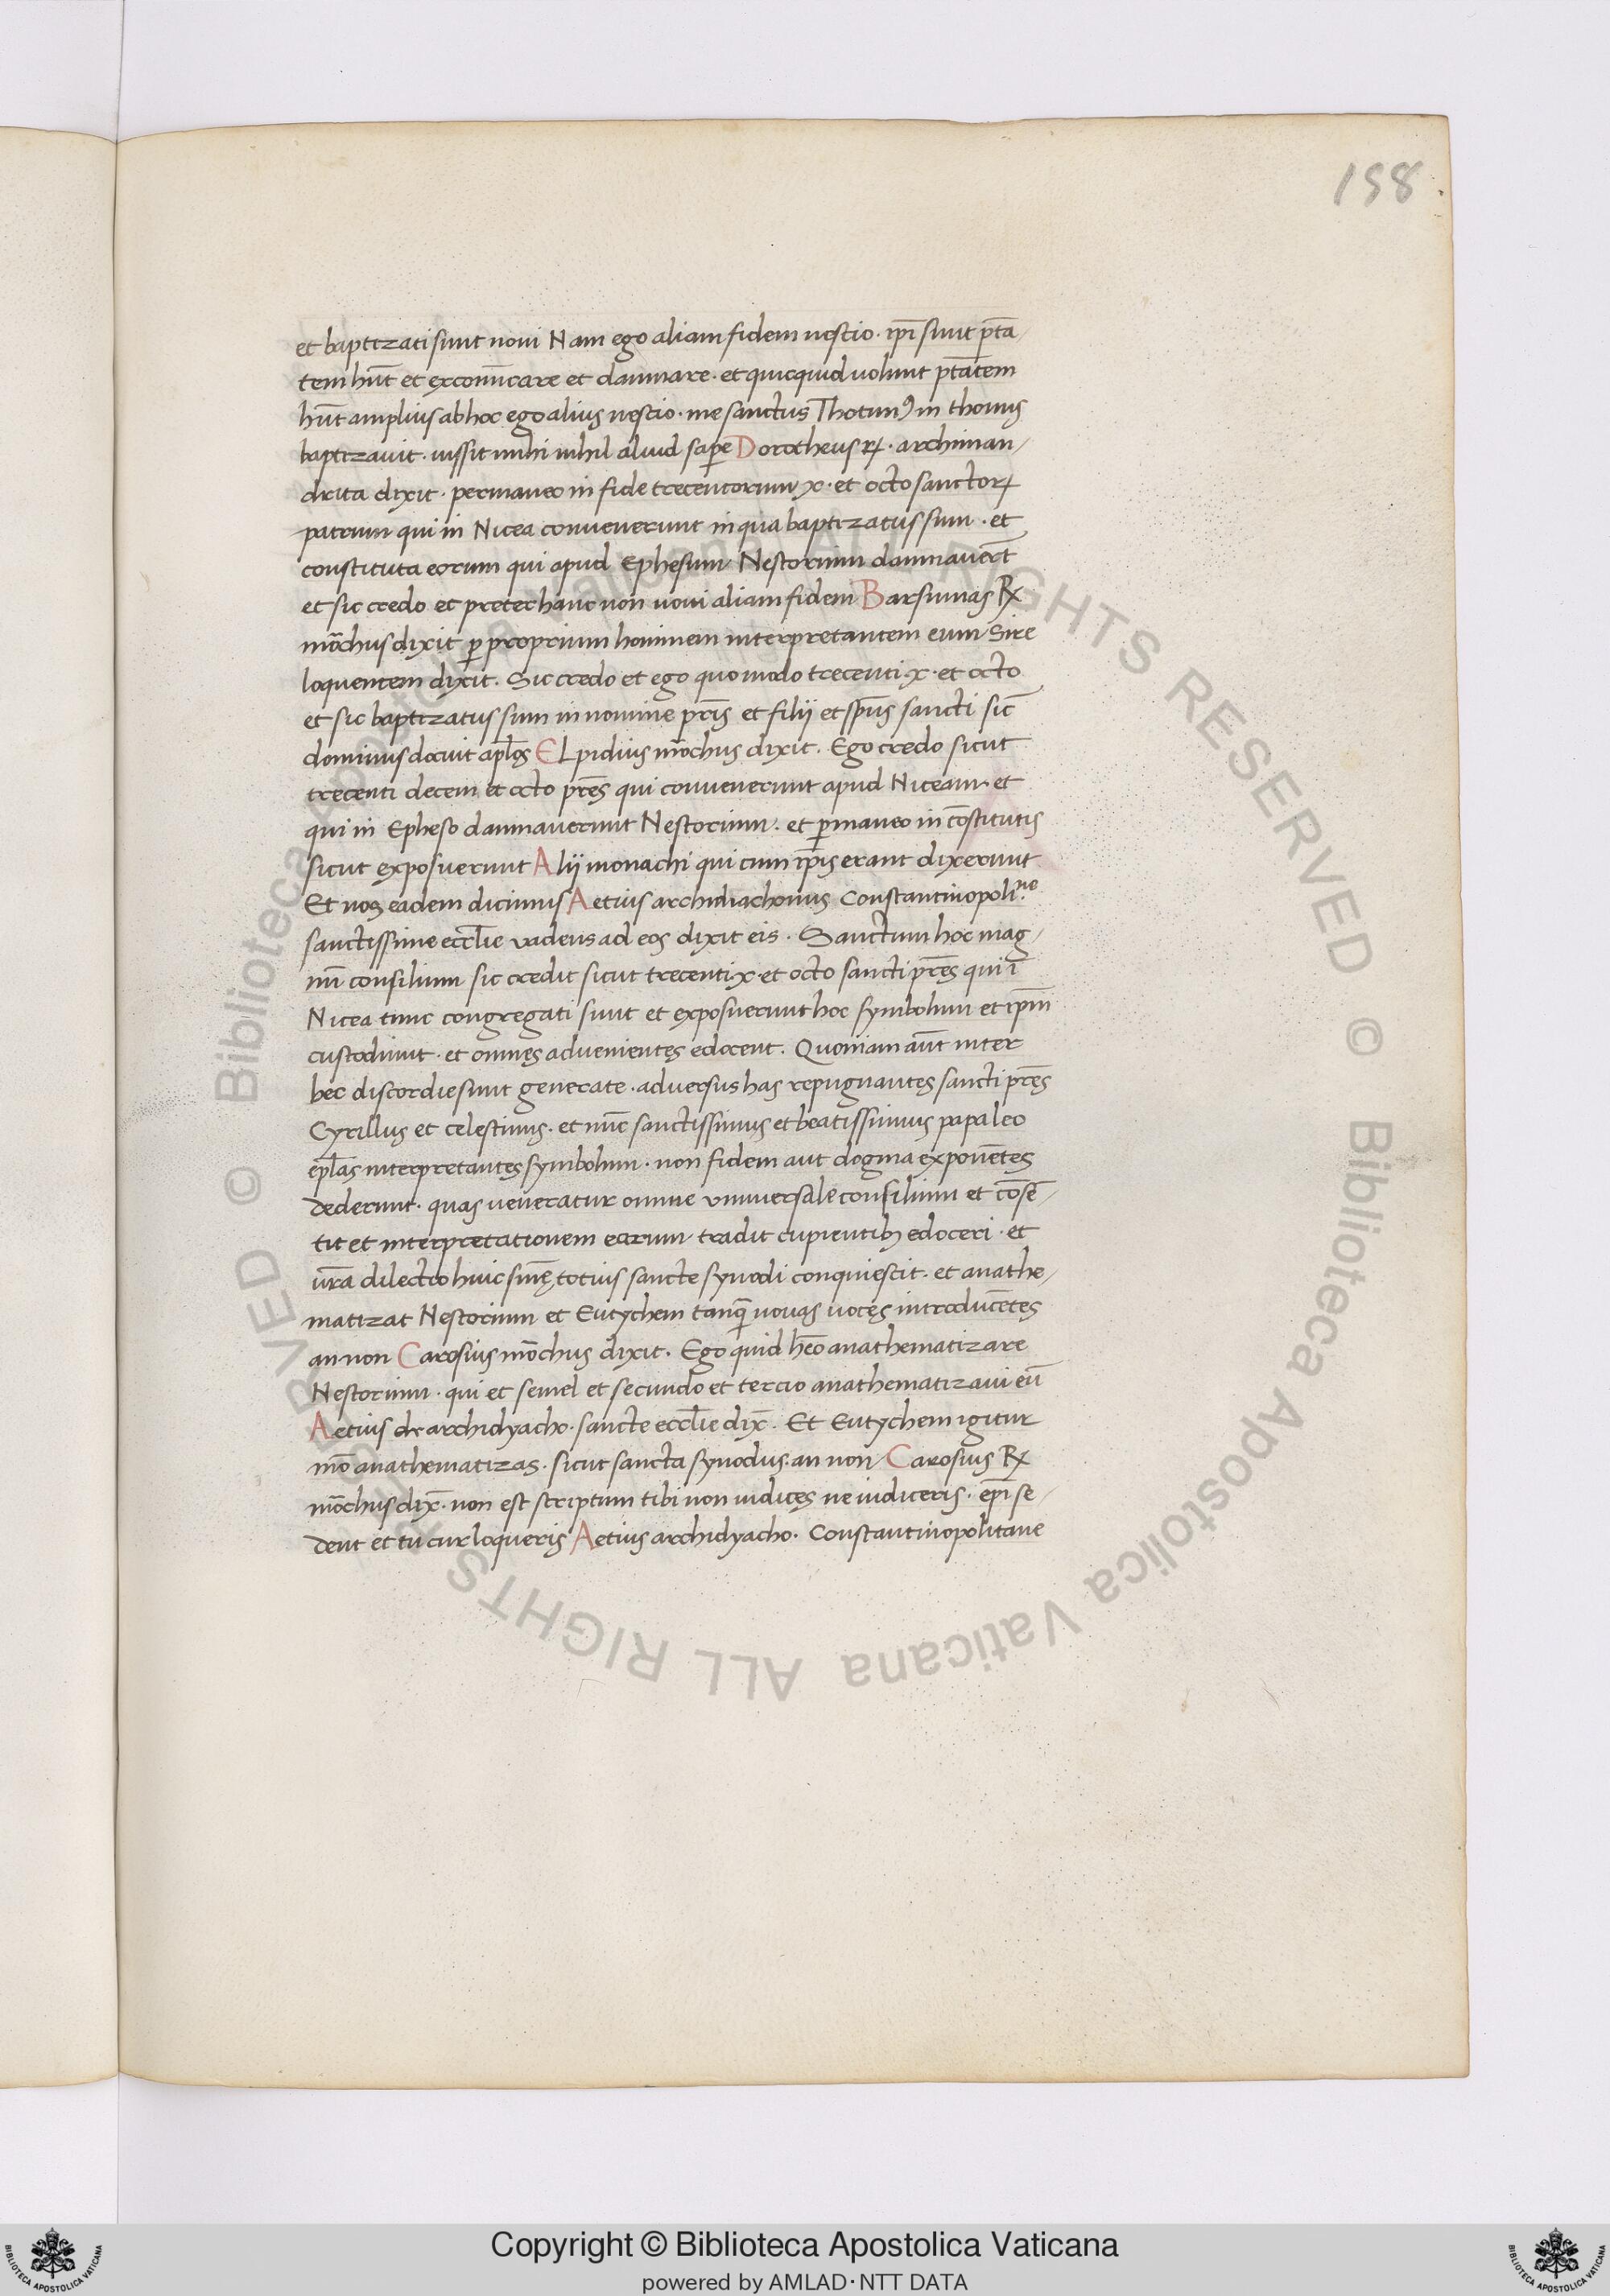 158
et baptizati sunt novi Nam ego aliam fidem nescio · ip̄i sunt p̄ta
tem hn̄t et excoīcare et damnare · et quicquid volunt ptātem
hn̄t amplius ab hoc ego alius nescio · me sanctus Thotimꝰ in thomis
baptizavit · iussit mihi nihil aliud sapere Dorotheus Rꝫ · archiman
drita dixit · permaneo in fide trecentorum x · et octo sanctorꝝ
patrum qui in Nicea convenerunt in qua baptizatus sum · et
constituta eorum qui apud Ephesum Nestorium damnaver̄t
et sic credo et preter hanc non novi aliam fidem Barsumas Rꝫ
mōchus dixit ꝑ proprium hominem interpretantem eum Sire
loquentem dixit · Sic credo et ego quo modo trecenti · x · et octo
et sic baptizatus sum in nomine pr̄is et filii et sp̄us sancti sic̄
dominus docuit apl̄os ELpidius mōchus dixit · Ego credo sicut
trecenti decem et octo pr̄es qui convenerunt apud Niceam · et
qui in Epheso damnaverunt Nestorium · et ꝑmaneo in cōstitutis
sicut exposuerunt Alii monachi qui cum ip̄is erant dixerunt
Et nos eadem dicimus Aetius archidiachonus Constantinopoli.ne
sanctissime eccl̄ie vadens ad eos dixit eis · Sanctum hoc mag
nū consilium sic credit sicut trecenti x · et octo sancti pr̄es qui ī
Nicea tunc congregati sunt et exposuerunt hoc symbolum et ip̄m
custodiunt · et omnes advenientes edocent · Quoniam aūt inter
hec discordie sunt generate · adversus has repugnantes sancti pr̄es
Cyrillus et celestinus · et nūc sanctissimus et beatissimus papa leo
epl̄as interpretantes symbolum · non fidem aut dogma exponētes
dederunt · quas veneratur omne universale consilium et cōsē
tit et interpretationem earum tradit cupientibꝫ edoceri · et
vr̄a dilectio huic sn̄ię totius sancte synodi conquiescit · et anathe
matizat Nestorium et Eutychem tanq̄ novas voces introducētes
an non Carosius mōchus dixit · Ego quid hēo anathematizare
Nestorium · qui et semel et secundo et tercio anathematizavi eū
Aetius archidyacho · sancte eccl̄ie dix̄ · Et Eutychem igitur
mō anathematizas · sicut sancta synodus · an non Carosius Rꝫ
mōchus dix̄ · non est scriptum tibi non iudices ne iudiceris · ep̄i se
dent et tu cur loqueris Aetius archidyacho · Constantinopolitane
© Biblioteca Apostolica Vaticana ALL RIGHTS RESERVED © Biblioteca Apostolica Vaticana ALL RIGHTS RESERVED
Copyright © Biblioteca Apostolica Vaticana
powered by AMLAD·NTT DATA
BIBLIOTECA APOSTOLICA VATICANA
BIBLIOTECA APOSTOLICA VATICANA